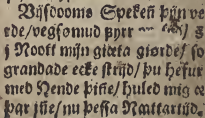 Vijsdooms Spekeñ þijn ve
rde/ vegsomud þyrr
j Noott mijn giæta giørde/ so
grandade ecke strijd/ þu hefur
med Nende þine/ huled mig æ
par jñe/ nu þessa Nattartijd.